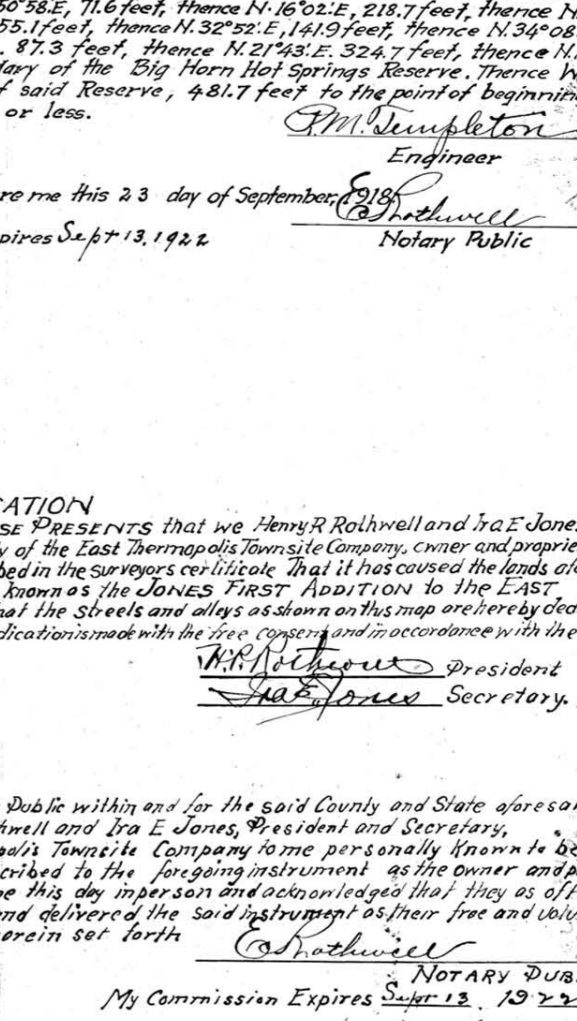 50°58'E, 71.6 feet, thence N.16°02'E, 218.7 feet, thence N
55.1 feet, thence N.32°52'E, 141.9 feet, thence N.34°08
. 87.3 feet, thence N.21°43'E. 324.7 feet, thence N.
dary of the Big Horn Hot Springs Reserve. Thence W
f said Reserve, 481.7 feet to the point of beginnin
or less.
P.M. Templeton
Engineer
re me this 23 day of September, 1918.
E Rothwell
pires Sept 13, 1922
Notary Public
CATION
SE PRESENTS that we Henry R Rothwell and Ira E Jone
y of the East Thermopolis Townsite Company, owner and proprie
bed in the surveyors certificate That it has caused the lands afo
known as the JONES FIRST ADDITION to the EAST
hat the streets and alleys as shown on this map are hereby ded
dication is made with the free consent and in accordance with the
H.R. Rothwell President
Ira E. Jones Secretary.
Public within and for the said County and State aforesai
hwell and Ira E Jones, President and Secretary,
polis Townsite Company to me personally known to be
cribed to the foregoing instrument as the owner and p
e this day in person and acknowledged that they as off
nd delivered the said instrument as their free and volu
erein set forth
E Rothwell
NOTARY PUB
My Commission Expires Sept 13. 1922